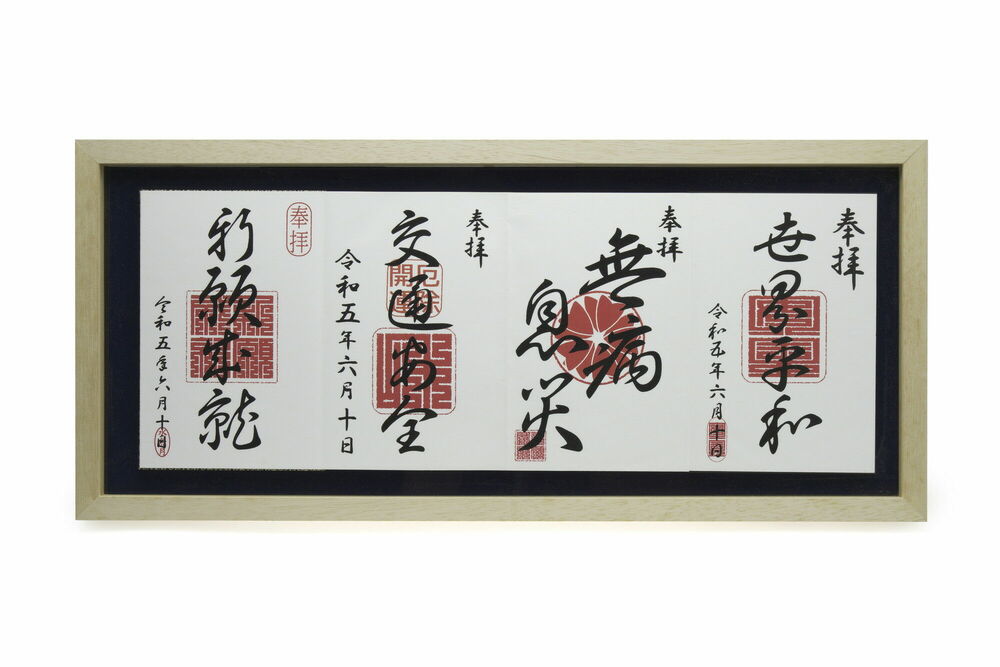 奉拝
世界平和
令和五年六月十日
奉拝
無病
息災
奉拝
交通安全
厄除
開運
令和五年六月十日
奉拝
祈願成就
令和五年六月十日